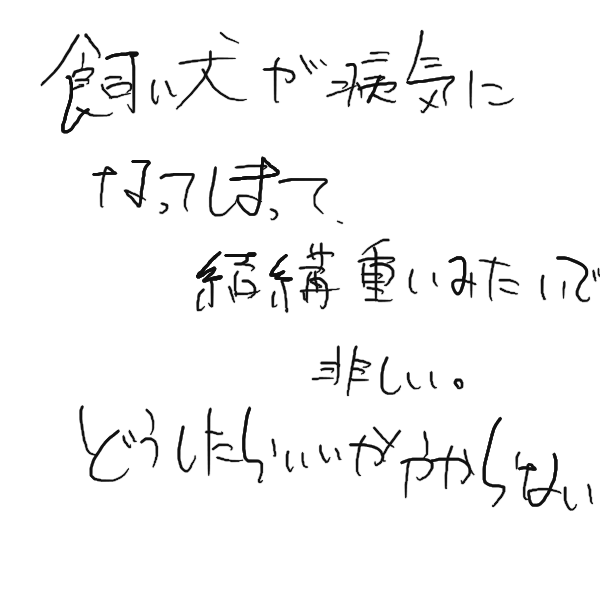 飼い犬が病気に
なってしまって、
結構重いみたいで
非しい。
どうしたらいいかわからない